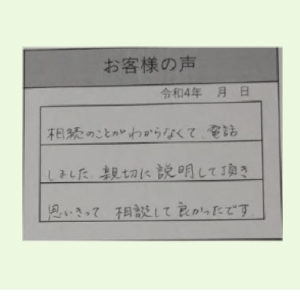 お客様の声
令和4年 月 日
相続のことがわからなくて、電話
しました。親切に説明して頂き
思いきって 相談して良かったです。